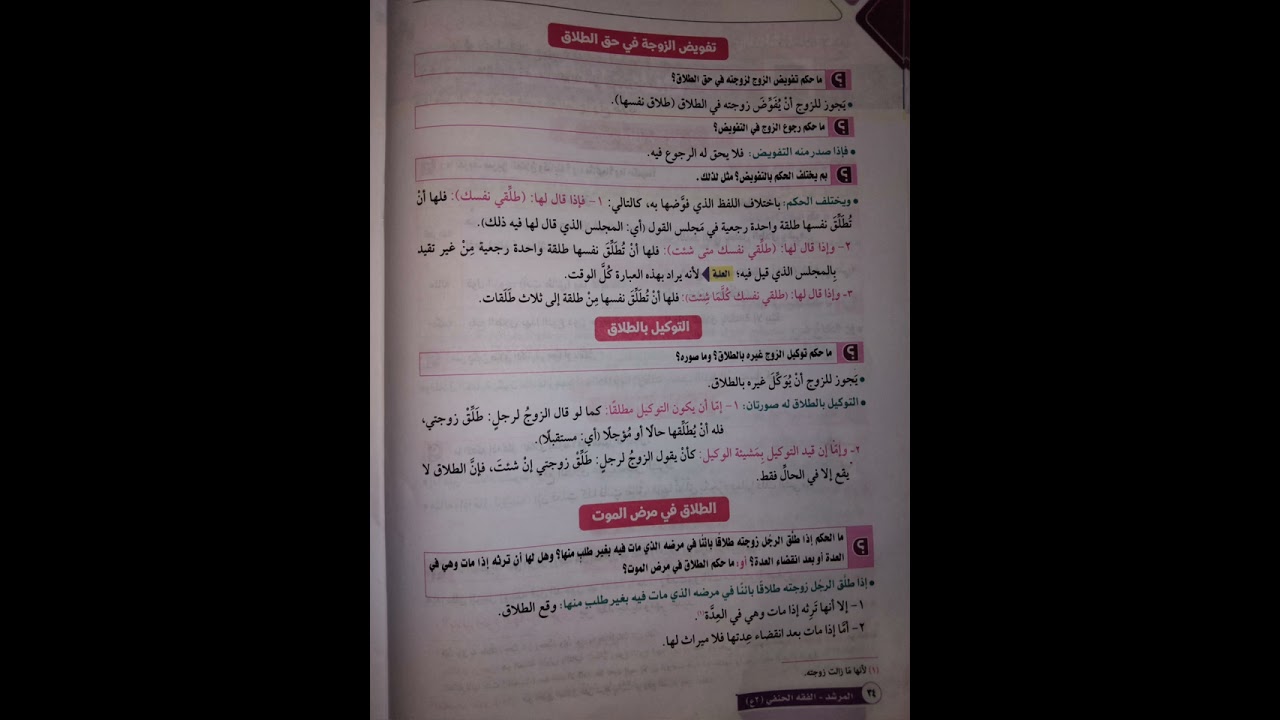 تفويض الزوجة في حق الطلاق
؟ ما حكم تفويض الزوج لزوجته في حق الطلاق؟
• يَجوز للزوج أنْ يُفَوِّضَ زوجته في الطلاق (طلاق نفسها).
؟ ما حكم رجوع الزوج في التفويض؟
• فإذا صدر منه التفويض: فلا يحق له الرجوع فيه.
؟ بم يختلف الحكم بالتفويض؟ مثل لذلك.
• ويختلف الحكم: باختلاف اللفظ الذي فوَّضها به، كالتالي: ١- فإذا قال لها: (طلِّقي نفسك): فلها أنْ
تُطلِّقَ نفسها طلقة واحدة رجعية في مَجلس القول (أي: المجلس الذي قال لها فيه ذلك).
٢- وإذا قال لها: (طلِّقي نفسك متى شئت): فلها أنْ تُطَلِّقَ نفسها طلقة واحدة رجعية مِنْ غير تقيد
بِالمجلس الذي قيل فيه؛ العلة لأنه يراد بهذه العبارة كُلَّ الوقت.
٣- وإذا قال لها: (طلقي نفسك كُلَّمَا شِئت): فلها أنْ تُطَلِّقَ نفسها مِنْ طلقة إلى ثلاث طَلَقات.
التوكيل بالطلاق
؟ ما حكم توكيل الزوج غيره بالطلاق؟ وما صوره؟
• يَجوز للزوج أنْ يُوَكِّلَ غيره بالطلاق.
• التوكيل بالطلاق له صورتان: ١- إمّا أن يكون التوكيل مطلقًا: كما لو قال الزوجُ لرجلٍ: طَلِّقْ زوجتي،
فله أنْ يُطَلِّقها حالًا أو مُؤجلًا (أي: مستقبلًا).
٢- وإمّا إن قيد التوكيل بِمَشيئة الوكيل: كأنْ يقول الزوجُ لرجلٍ: طَلِّقْ زوجتي إنْ شئتَ، فإنَّ الطلاق لا
يقع إلا في الحالِّ فقط.
الطلاق في مرض الموت
؟ ما الحكم إذا طلَّق الرجُل زوجته طلاقًا بائنًا في مرضه الذي مات فيه بغير طلب منها؟ وهل لها أن ترثه إذا مات وهي في
العدة أو بعد انقضاء العدة؟ أو، ما حكم الطلاق في مرض الموت؟
• إذا طلَّق الرجل زوجته طلاقًا بائنًا في مرضه الذي مات فيه بغير طلب منها: وقع الطلاق.
١- إلا أنها تَرِثه إذا مات وهي في العِدَّة(١).
٢- أمَّا إذا مات بعد انقضاء عِدتها فلا ميراث لها.
(١) لأنها مَا زالت زوجته.
٣٤ المرشد - الفقه الحنفي (٢ع)